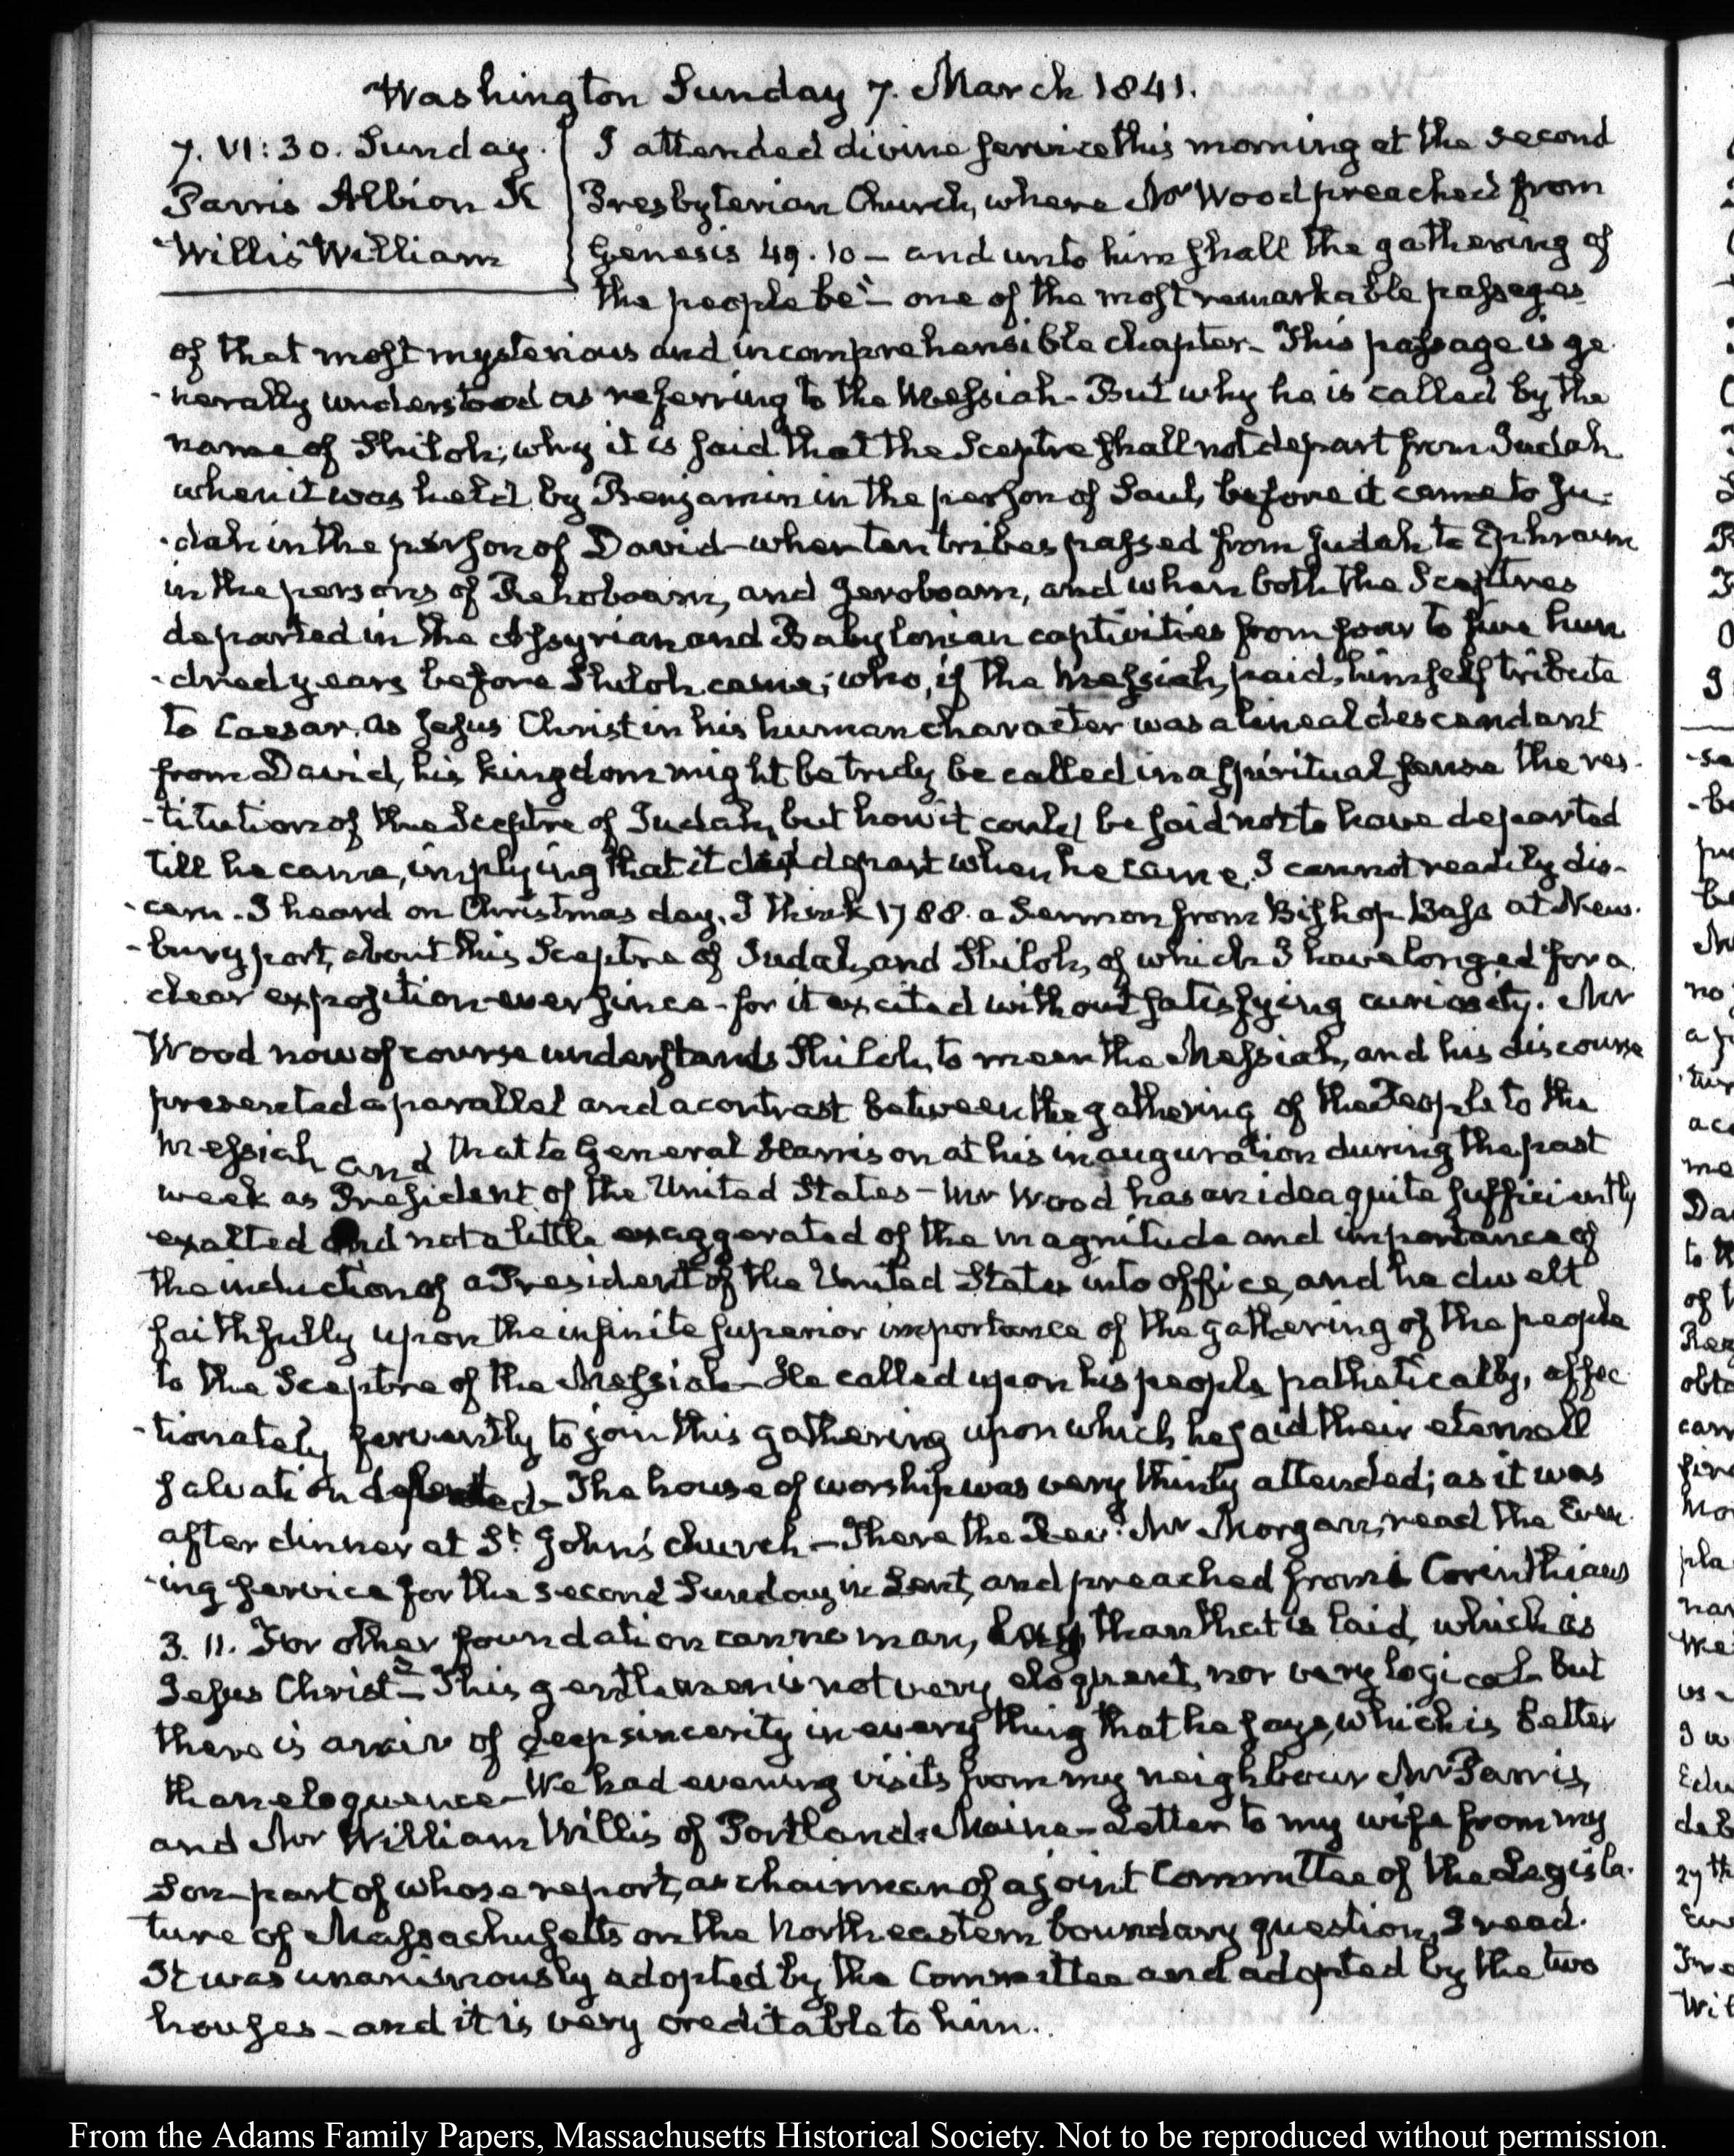 Washington Sunday 7. March 1841.
7. VI:30. Sunday.
Parris Albion K
Willis William
I attended divine service this morning at the second
Presbyterian Church, where Mr Wood preached from
Genesis 49.10 – and unto him shall the gathering of
the people be" – one of the most remarkable passages
of that most mysterious and incomprehensible chapter – This passage is ge
-nerally understood as referring to the Messiah – But why he is called by the
name of Shiloh; why it is said that the Sceptre shall not depart from Judah
when it was held by Benjamin in the person of Saul, before it came to Ju-
-dah in the person of David – when ten tribes passed from Judah to Ephraim
in the persons of Rehoboam, and Jeroboam, and when both the Sceptres
departed in the Assyrian and Babylonian captivities from four to five hun
-dred years before Shiloh came; who, if the Messiah, paid, himself tribute
to Caesar. as Jesus Christ in his human character was a lineal descendant
from David, his kingdom might be truly be called in a spiritual sense the res-
-titution of the Sceptre of Judah, but how it could be said not to have departed
till he came, implying that it did depart when he came, I cannot readily dis-
-cern – I heard on Christmas day, I think 1788. a Sermon from Bishop Bass at New-
-buryport, about this Sceptre of Judah, and Shiloh, of which I have longed for a
clear exposition ever since – for it excited without satisfying curiosity. Mr
Wood now of course understands Shiloh, to mean the Messiah, and his discourse
presented a parallel and a contrast between the gathering of the People to the
Messiah and that to General Harrison at his inauguration during the past
week as President of the United States – Mr Wood has an idea quite sufficiently
exalted and not a little exaggerated of the magnitude and importance of
the induction of a President of the United States into office, and he dwelt
faithfully upon the infinite superior importance of the gathering of the people
to the Sceptre of the Messiah – He called upon his people pathetically, affec
-tionately, fervently to join this gathering upon which he said their eternall
salvation depended – The house of worship was very thinly attended; as it was
after dinner at St. John's church – There the Revd. Mr Morgan, read the Even
-ing service for the second Sunday in Lent, and preached from 1 Corinthians
3. 11. For other foundation can no man, lay than that is laid, which is
Jesus Christ" – This gentleman is not very eloquent, nor very logical – But
there is an air of deep sincerity in every thing that he says, which is better
than eloquence – We had evening visits from my neighbour Mr Parris,
and Mr William Willis of Portland, Maine – Letter to my wife from my
Son – part of whose report, as chairman of a joint Committee of the Legisla-
ture of Massachusetts on the North eastern boundary question, I read.
It was unanimously adopted by the Committee and adopted by the two
houses – and it is very creditable to him.
From the Adams Family Papers, Massachusetts Historical Society. Not to be reproduced without permission.